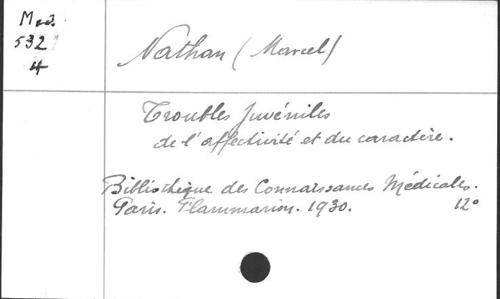 Med.
532
4
Nathan (Marcel)
Troubles juvéniles
de l'affectivité et du caractère.
Bibliothèque des Connaissances Médicales.
Paris. Flammarion. 1930. 12°